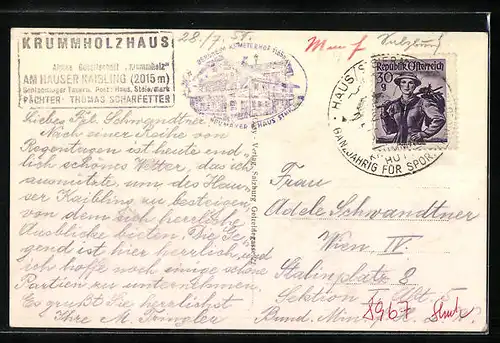 KRUMMHOLZHAUS
Alpine Gesellschaft „Krummholz"
AM HAUSER KAIBLING (2015 m)
Schladminger Tauern, Post: Haus, Steiermark
PÄCHTER: THOMAS SCHARFETTER
28./7. 51.
Salzburg
Republik Österreich
30 g
HAUS
GANZJÄHRIG FÜR SPORT
Liebes Frl. Schwandtner
Nach einer Reihe von
Regentagen ist heute end-
lich schönes Wetter, das ich
ausnützte, um des Hau-
ser Kaibling zu besteigen,
von dem sich herrliche
Ausblicke bieten. Die Ge-
gend ist hier herrlich und
ich hoffe noch einige schöne
Partien zu unternehmen.
Es grüßt Sie herzlichst
Ihre M.
Verlag, Salzburg
Frau
Adele Schwandtner
Wien IV.
Stalinplatz 8
Sektion
Bund. Min.
8967